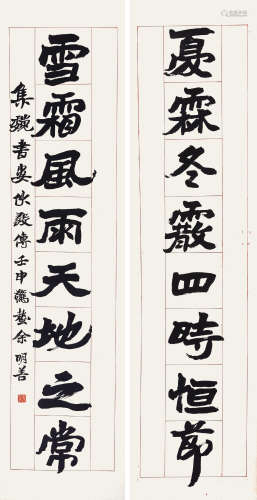 夏霖冬霰四時恒節
雪霜風雨天地之常
集書傳壬申驚蟄余明善